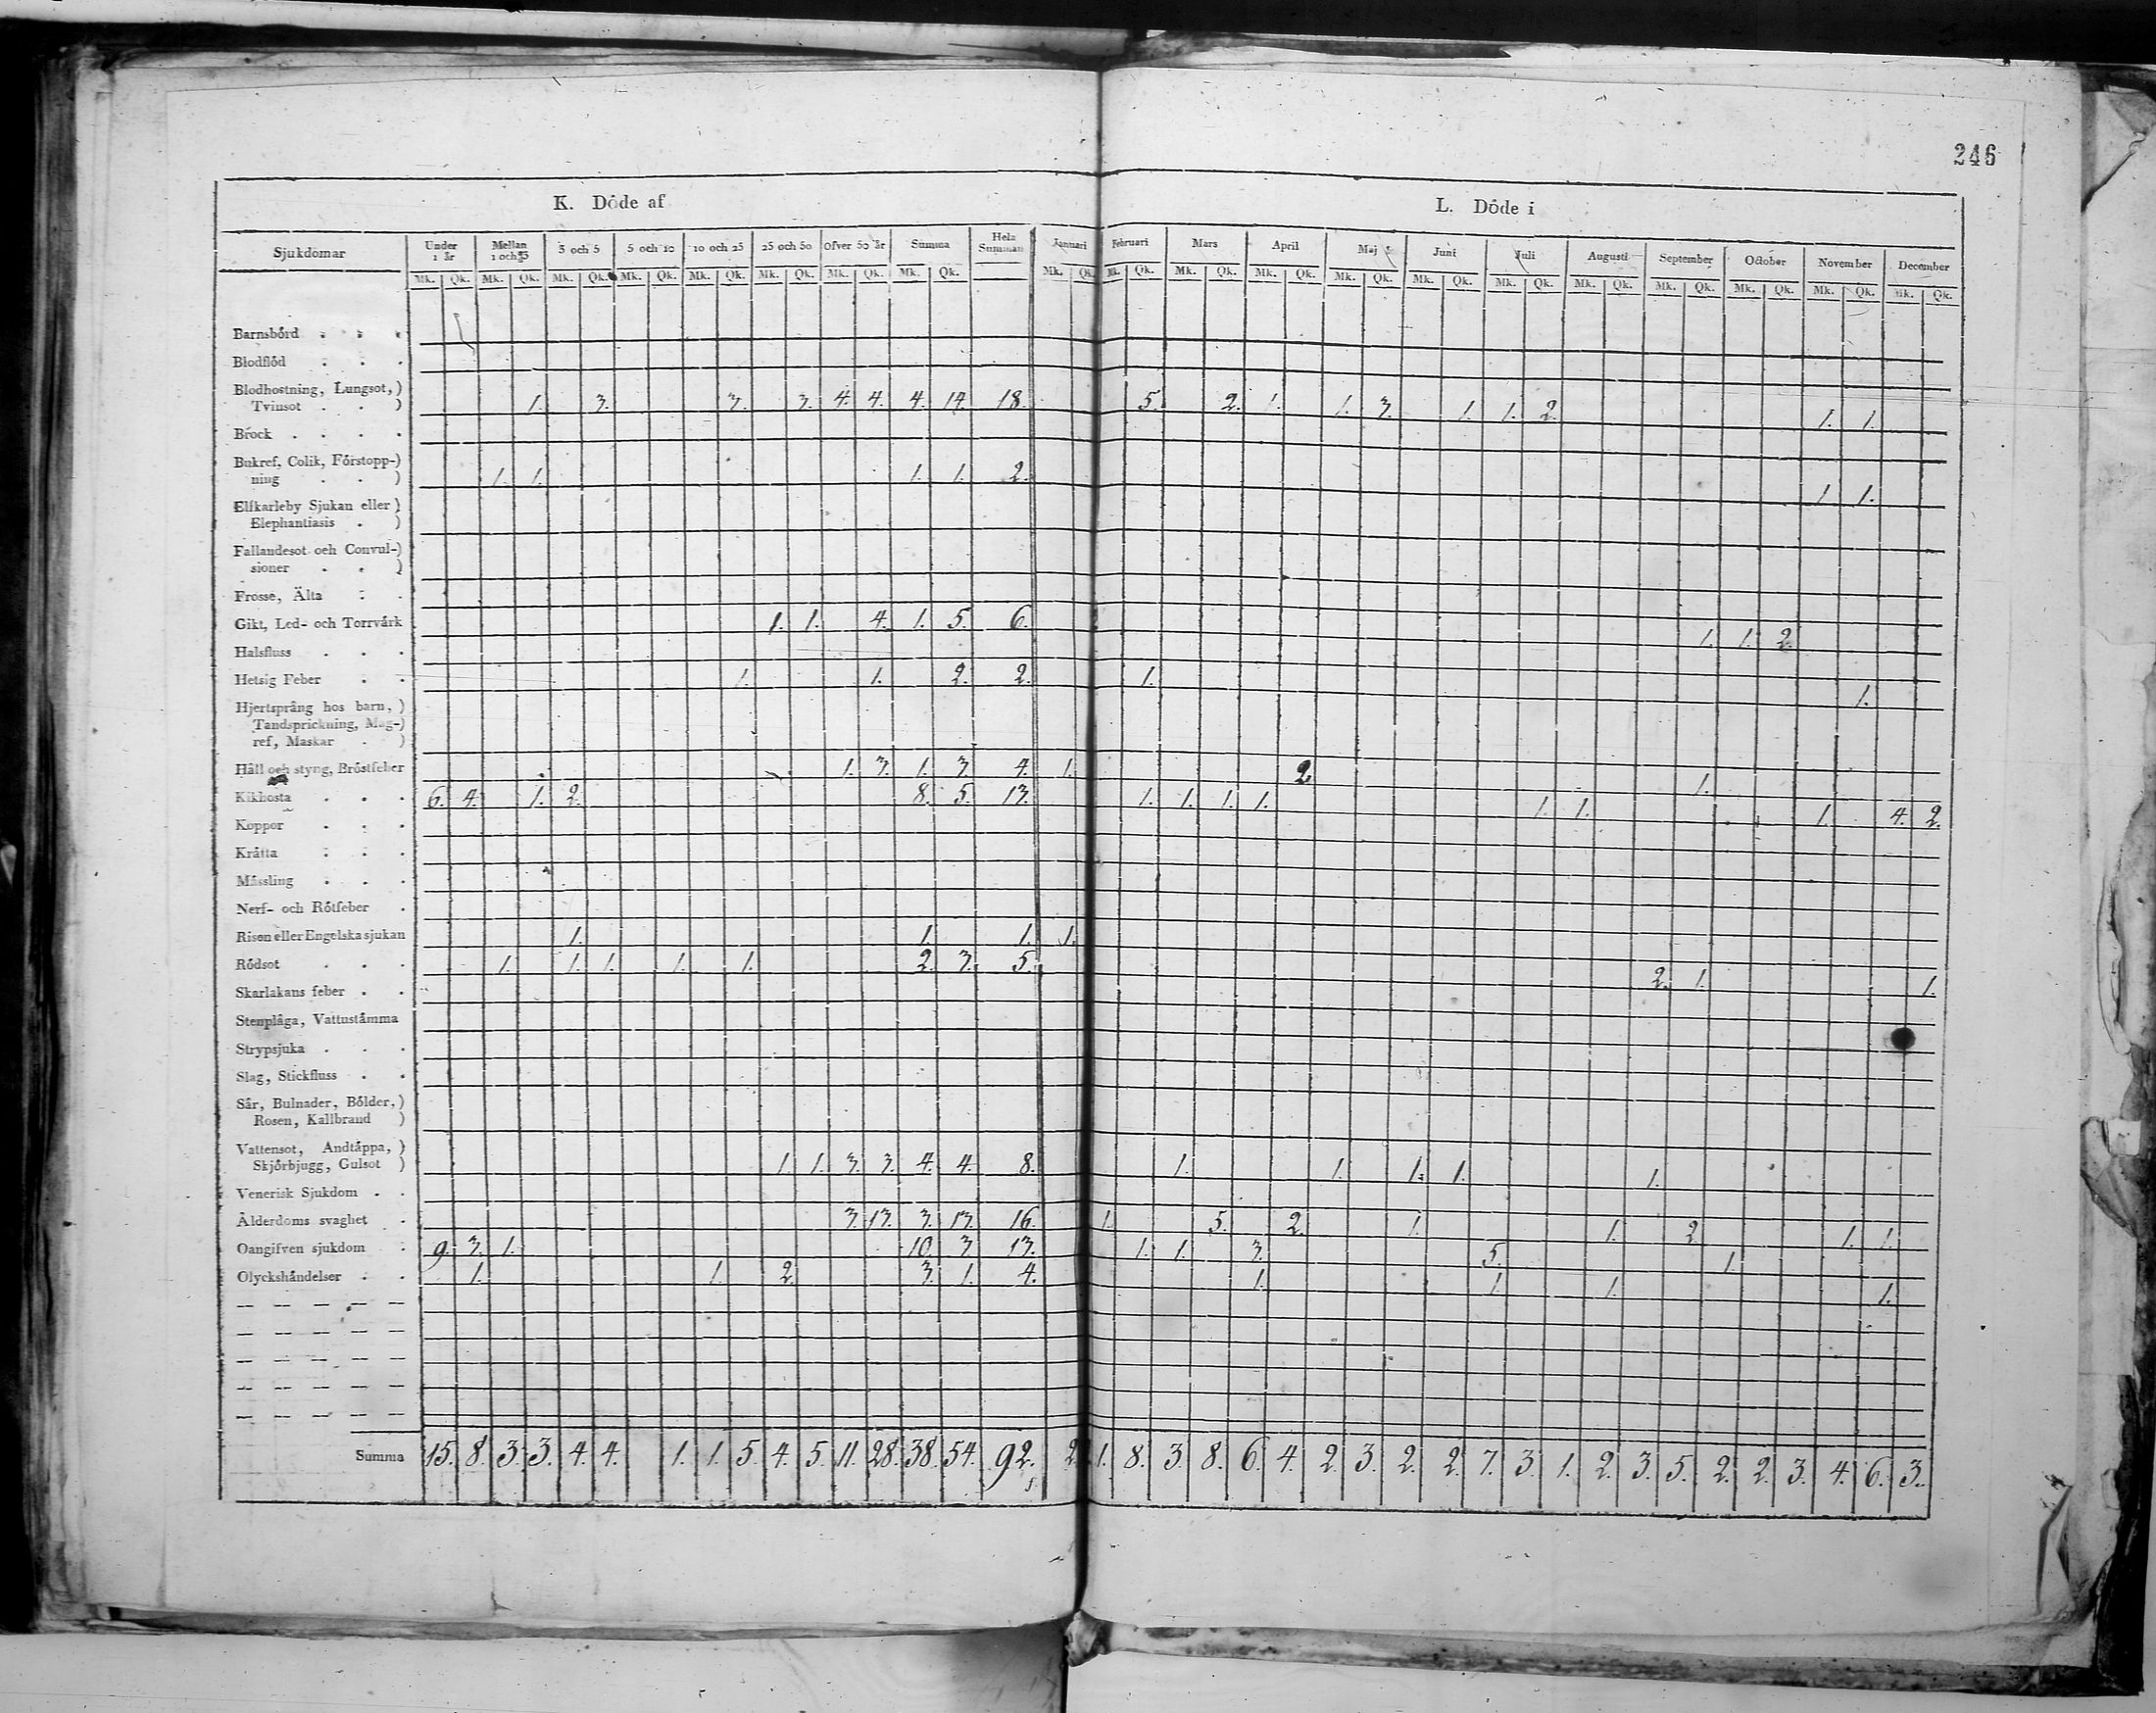 246
K. Döde af L. Döde i
Sjukdomar Under 1 år Mellan 1 och 3 3 och 5 5 och 10 10 och 25 25 och 50 Öfver 50 år Summa Hela Summan Januari Februari Mars April Maj Juni Juli Augusti September October November December
Mk. Qk. Mk. Qk. Mk. Qk. Mk. Qk. Mk. Qk. Mk. Qk. Mk. Qk. Mk. Qk. Mk. Qk. Mk. Qk. Mk. Qk. Mk. Qk. Mk. Qk. Mk. Qk. Mk. Qk. Mk. Qk. Mk. Qk. Mk. Qk. Mk. Qk. Mk. Qk.
Barnsbörd . . .
Blodflöd . . .
Blodhostning, Lungsot,)
Tvinsot . . ) 1. 3. 3. 3. 4. 4. 4. 14. 18. 5. 2. 1. 1. 3. 1. 1. 2. 1. 1.
Brock . . . .
Bukref, Colik, Förstopp-)
ning . . ) 1. 1. 1. 1. 2. 1. 1.
Elfkarleby Sjukan eller)
Elephantiasis . )
Fallandesot och Convul-)
sioner . . )
Frosse, Älta : .
Gikt, Led- och Torrvärk 1. 1. 4. 1. 5. 6. 1. 1. 2.
Halsfluss . . .
Hetsig Feber . . 1. 1. 2. 2. 1. 1.
Hjertsprång hos barn, )
Tandsprickning, Mag-)
ref, Maskar . )
Håll och styng, Bröstfeber 1. 3. 1. 3. 4. 1. 2. 1.
Kikhosta . . . 6. 4. 1. 2. 8. 5. 13. 1. 1. 1. 1. 1. 1. 1. 4. 2.
Koppor . . .
Kråtta . . .
Mässling . . .
Nerf- och Rötfeber .
Risen eller Engelska sjukan 1. 1. 1. 1.
Rödsot . . . 1. 1. 1. 1. 1. 2. 3. 5. 2. 1. 1.
Skarlakans feber . .
Stenplåga, Vattustämma
Strypsjuka . . .
Slag, Stickfluss . .
Sår, Bulnader, Bölder,)
Rosen, Kallbrand )
Vattensot, Andtäppa, )
Skjörbjugg, Gulsot ) 1. 1. 3. 3. 4. 4. 8. 1. 1. 1. 1. 1.
Venerisk Sjukdom . .
Ålderdoms svaghet . 3. 13. 3. 13. 16. 1. 5. 2. 1. 1. 2. 1. 1.
Oangifven sjukdom . 9. 3. 1. 10. 3. 13. 1. 1. 3. 5. 1.
Olyckshändelser . . 1. 1. 2. 3. 1. 4. 1. 1. 1. 1.
Summa 15. 8. 3. 3. 4. 4. 1. 1. 5. 4. 5. 11. 28. 38. 54. 92. 2. 1. 8. 3. 8. 6. 4. 2. 3. 2. 2. 7. 3. 1. 2. 3. 5. 2. 2. 3. 4. 6. 3.